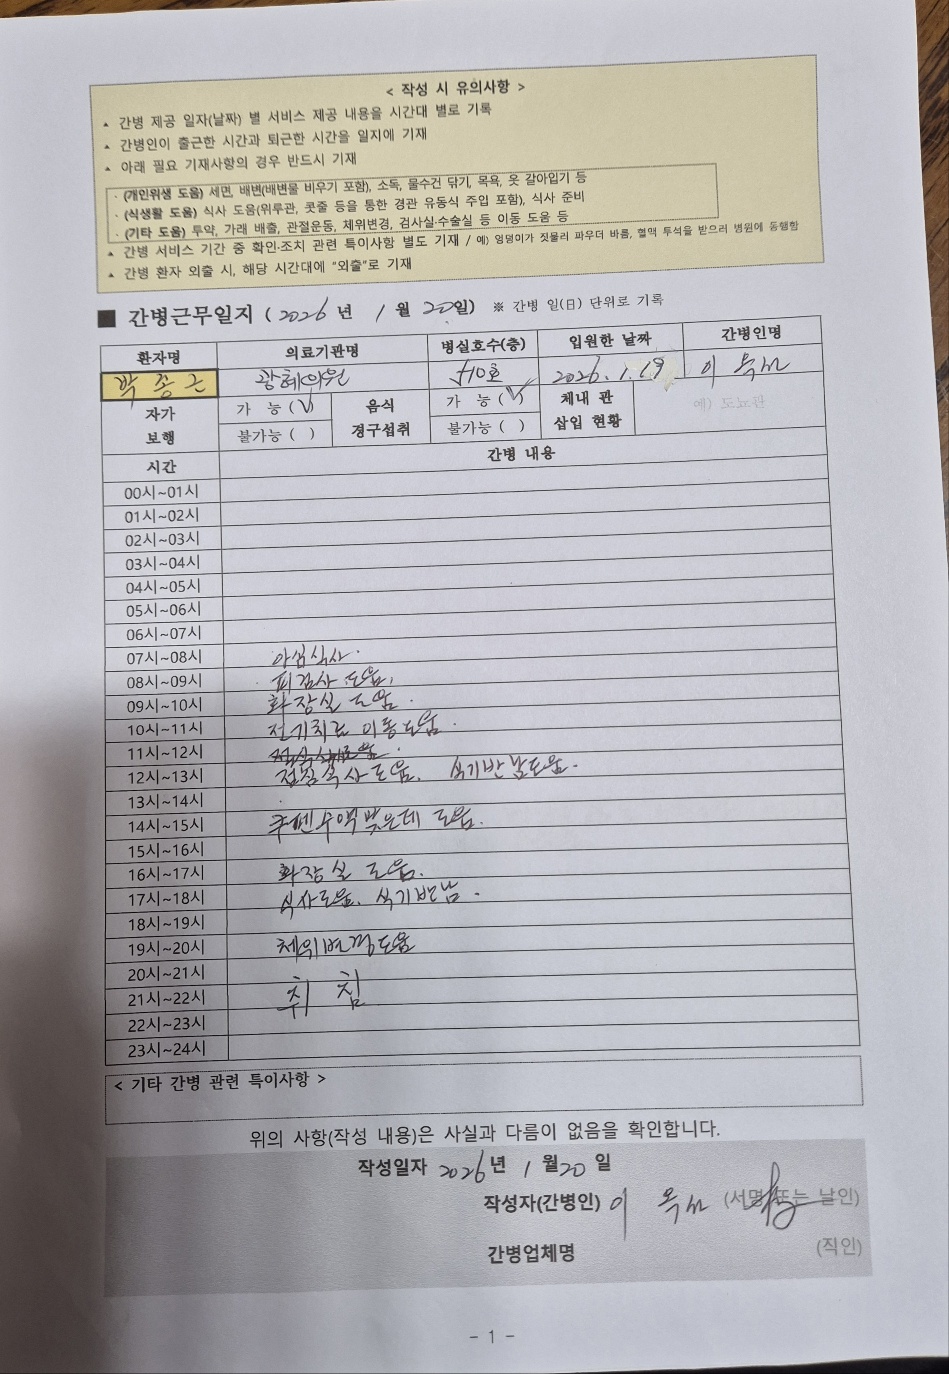 < 작성 시 유의사항 >
▲ 간병 제공 일자(날짜) 별 서비스 제공 내용을 시간대 별로 기록
▲ 간병인이 출근한 시간과 퇴근한 시간을 일지에 기재
▲ 아래 필요 기재사항의 경우 반드시 기재
· (개인위생 도움) 세면, 배변(배변물 비우기 포함), 소독, 물수건 닦기, 목욕, 옷 갈아입기 등
· (식생활 도움) 식사 도움(위루관, 콧줄 등을 통한 경관 유동식 주입 포함), 식사 준비
· (기타 도움) 투약, 가래 배출, 관절운동, 체위변경, 검사실·수술실 등 이동 도움 등
▲ 간병 서비스 기간 중 확인·조치 관련 특이사항 별도 기재 / 예) 엉덩이가 짓물러 파우더 바름, 혈액 투석을 받으러 병원에 동행함
▲ 간병 환자 외출 시, 해당 시간대에 "외출"로 기재
■ 간병근무일지 ( 2026 년 1 월 20일) ※ 간병 일(日) 단위로 기록
환자명 의료기관명 병실호수(층) 입원한 날짜 간병인명
박종근 광혜의원 710호 2026.1.19 이옥선
자가 보행 가 능 (V) 음식 경구섭취 가 능 (V) 체내 관 삽입 현황 예)
불가능 ( ) 불가능 ( )
시간 간병 내용
00시~01시
01시~02시
02시~03시
03시~04시
04시~05시
05시~06시
06시~07시
07시~08시 아침식사.
08시~09시 피검사 도움.
09시~10시 화장실 도움.
10시~11시 전기치료 이동도움.
11시~12시
12시~13시 점심식사도움. 식기반납도움.
13시~14시
14시~15시 수액 맞는데 도움.
15시~16시
16시~17시 화장실 도움.
17시~18시 식사도움. 식기반납.
18시~19시
19시~20시 체위변경도움
20시~21시
21시~22시 취 침
22시~23시
23시~24시
< 기타 간병 관련 특이사항 >
위의 사항(작성 내용)은 사실과 다름이 없음을 확인합니다.
작성일자 2026년 1 월20 일
작성자(간병인) 이옥선 (서명 또는 날인)
간병업체명 (직인)
- 1 -